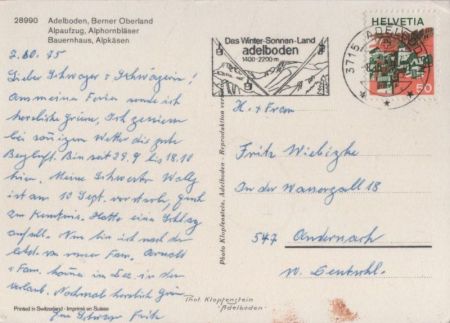 28990 Adelboden, Berner Oberland
Alpaufzug, Alphornbläser
Bauernhaus, Alpkäsen
2.10.75
Lieber Schwager & Schwägerin!
Aus meinen Ferien sende ich
herzliche Grüsse, Ich geniesse
bei sonnigem Wetter die gute
Bergluft. Bin seit 29.9 bis 18.10
hier. Meine Schwester Wally
ist am 10 Sept. verstorben,
zur Kenntnis. Hatte eine Schlag
anfall. Nun bin ich noch der
letzte von unser Fam. Arnold
& Fam. kommen in Dez. in den
Urlaub. Nochmal herzlich Grüsse
Schwager Fritz
Printed in Switzerland - Imprimé en Suisse
Photo Klopfenstein, Adelboden - Reproduktion
Phot Klopfenstein
"Adelboden"
Das Winter-Sonnen-Land
adelboden
1400-2200 m
3715 ADELBODEN
HELVETIA
50
H. & Frau
Fritz
In der Wasserzall 18
547 Andernach
W. Deutschl.